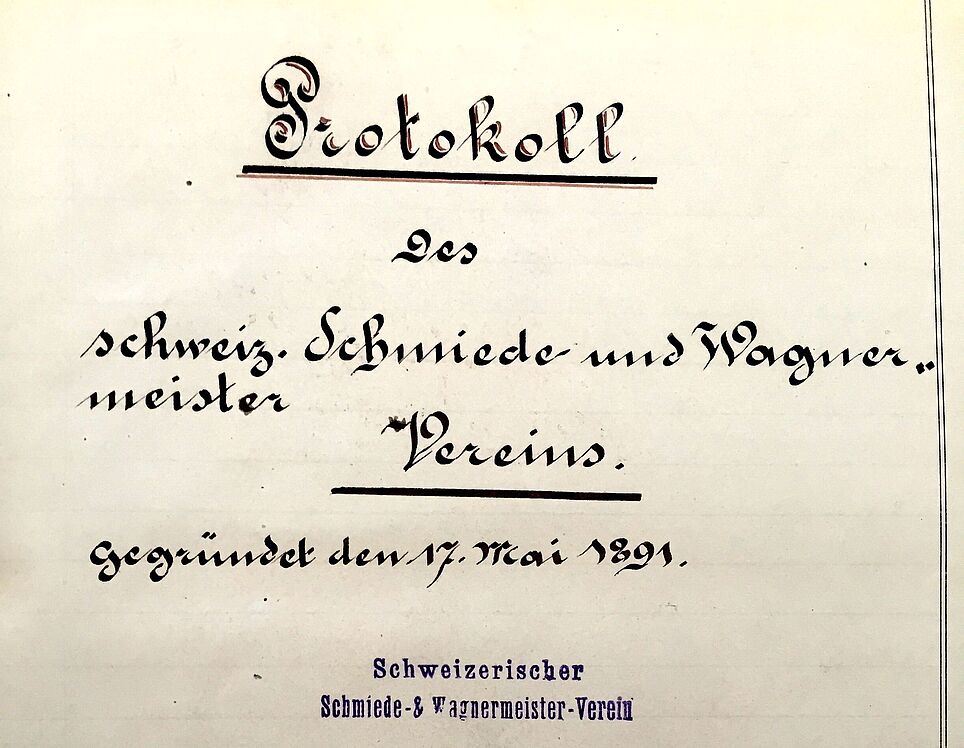 Protokoll.
des
schweiz. Schmiede und Wagner„
meister
Vereins.
gegründet den 17. Mai 1891.
Schweizerischer
Schmiede-& Wagnermeister-Verein